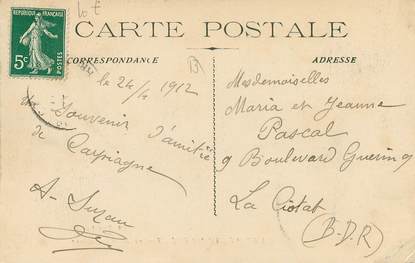 10 €
RÉPUBLIQUE FRANÇAISE
5c
CARTE POSTALE
CORRESPONDANCE
ADRESSE
le 24/4 1912
Souvenir d'amitié
de Carpiagne
A-
Mesdemoiselles
Maria et Jeanne
Pascal
9 Boulevard Guerin 9
La Ciotat
(B-D-R)